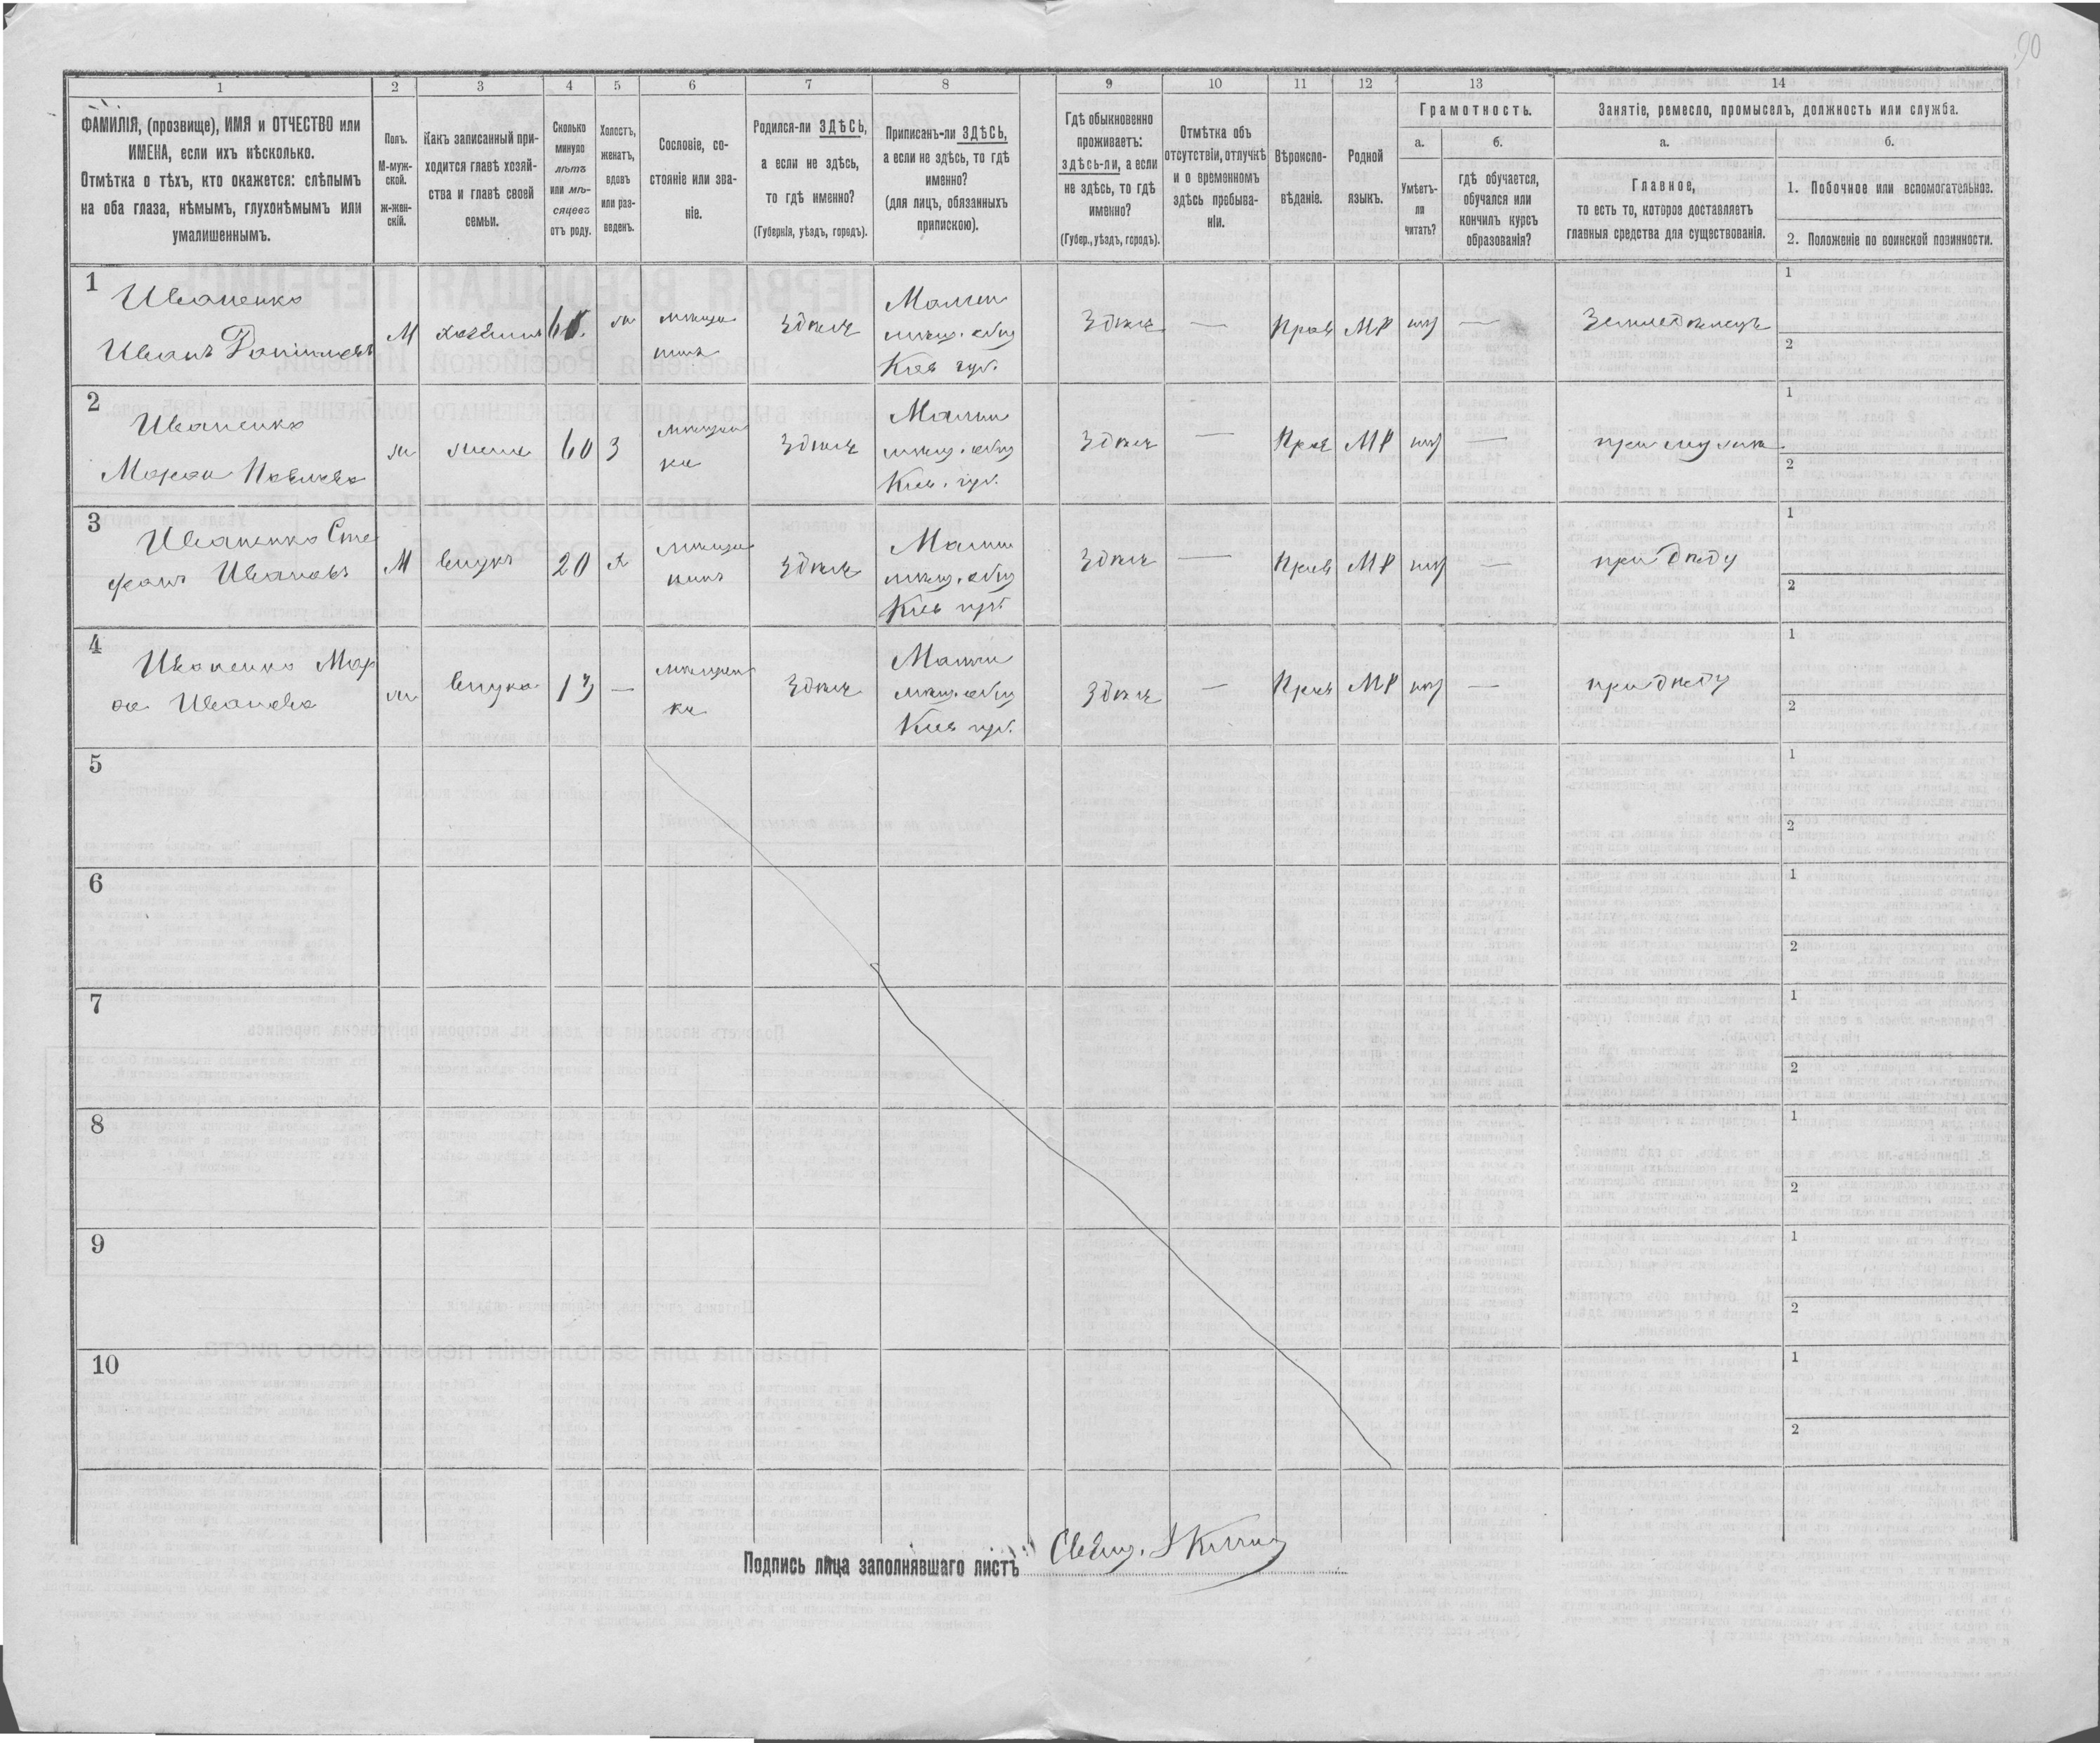 90
1
2
3
4
5
6
7
8
9
10
11
12
13
14
ФАМИЛІЯ, (прозвище), ИМЯ и ОТЧЕСТВО или
ИМЕНА, если ихъ нѣсколько.
Отмѣтка о тѣхъ, кто окажется: слѣпымъ
на оба глаза, нѣмымъ, глухонѣмымъ или
умалишеннымъ.
Полъ.
М-муж-
ской.
ж-жен-
скій.
Какъ записанный при-
ходится главѣ хозяй-
ства и главѣ своей
семьи.
Сколько
минуло
лѣтъ
или мѣ-
сяцевъ
отъ роду.
Холостъ,
женатъ,
вдовъ
или раз-
веденъ.
Сословіе, со-
стояніе или зва-
ніе.
Родился-ли ЗДѢСЬ,
а если не здѣсь,
то гдѣ именно?
(Губернія, уѣздъ, городъ).
Приписанъ-ли ЗДѢСЬ,
а если не здѣсь, то гдѣ
именно?
(для лицъ, обязанныхъ
припискою).
Гдѣ обыкновенно
проживаетъ:
здѣсь-ли, а если
не здѣсь, то гдѣ
именно?
(Губер., уѣздъ, городъ).
Отмѣтка объ
отсутствіи, отлучкѣ
и о временномъ
здѣсь пребыва-
ніи.
Вѣроиспо-
вѣданіе.
Родной
языкъ.
Грамотность.
а.
Умѣетъ-
ли
читать?
б.
гдѣ обучается,
обучался или
кончилъ курсъ
образованія?
Занятіе, ремесло, промыселъ, должность или служба.
а.
Главное,
то есть то, которое доставляетъ
главныя средства для существованія.
б.
1. Побочное или вспомогательное.
2. Положеніе по воинской повинности.
1
Иваненко
Иванъ
М
хозяинъ
ж
мѣща
нинъ
Здѣсь
Малин
мѣщ. общ
Кіев губ.
Здѣсь
—
Прав
МР
нѣт
—
Земледѣлецъ
1
2
2
Иваненко
ж
жена
60
З
мѣщан
ка
Здѣсь
Малин
мѣщ. общ
Кіев. губ.
Здѣсь
—
Прав
МР
нѣт
—
при мужѣ
1
2
3
Иваненко Сте
фанъ Ивановъ
М
внукъ
20
х
мѣща
нинъ
Здѣсь
Малин
мѣщ. общ
Кіев губ
Здѣсь
—
Прав
МР
нѣт
—
при дѣду
1
2
4
Иваненко
Иванова
ж
внука
13
—
мѣщан
ка
Здѣсь
Малин
мѣщ. общ
Кіев губ.
Здѣсь
—
Прав
МР
нѣт
—
при дѣду
1
2
5
1
2
6
1
2
7
1
2
8
1
2
9
1
2
10
1
2
Подпись лица заполнявшаго листъ